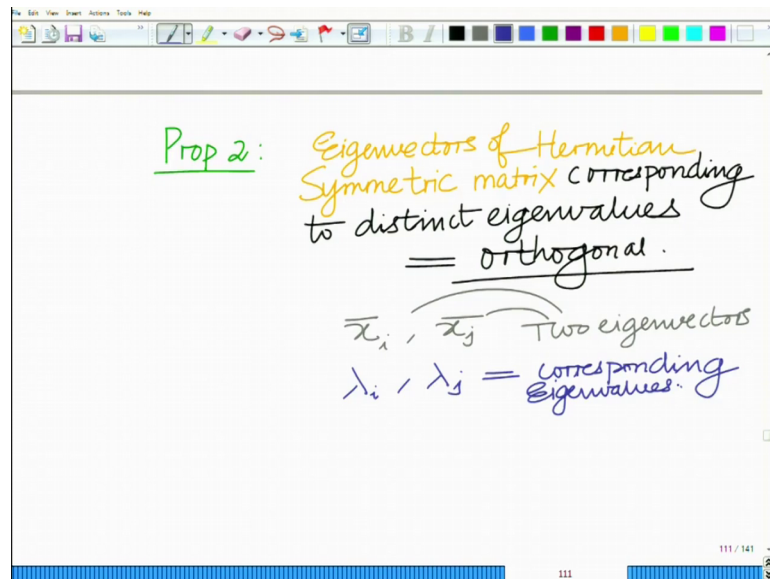 File Edit View Insert Actions Tools Help
B I
Prop 2: Eigenvectors of Hermitian
Symmetric matrix corresponding
to distinct eigenvalues
= orthogonal.
x̄ᵢ, x̄ⱼ Two eigenvectors
λᵢ, λⱼ = corresponding
Eigenvalues.
111 / 141
111